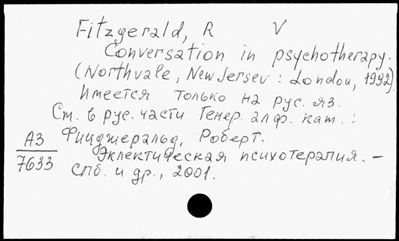 Fitzgerald, R V
Conversation in psychotherapy.
(Northvale, New Jersev : London, 1992)
Имеется только на рус. яз.
См. в рус. части Генер. алф. кат. :
Фицджеральд, Роберт.
А3
7633
Эклектическая психотерапия. –
СПб. и др., 2001.